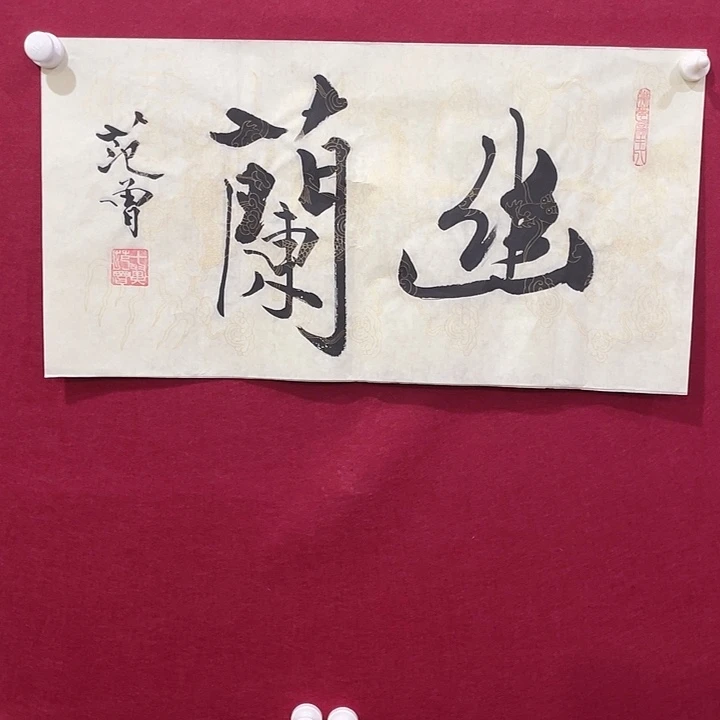 幽蘭
范曾